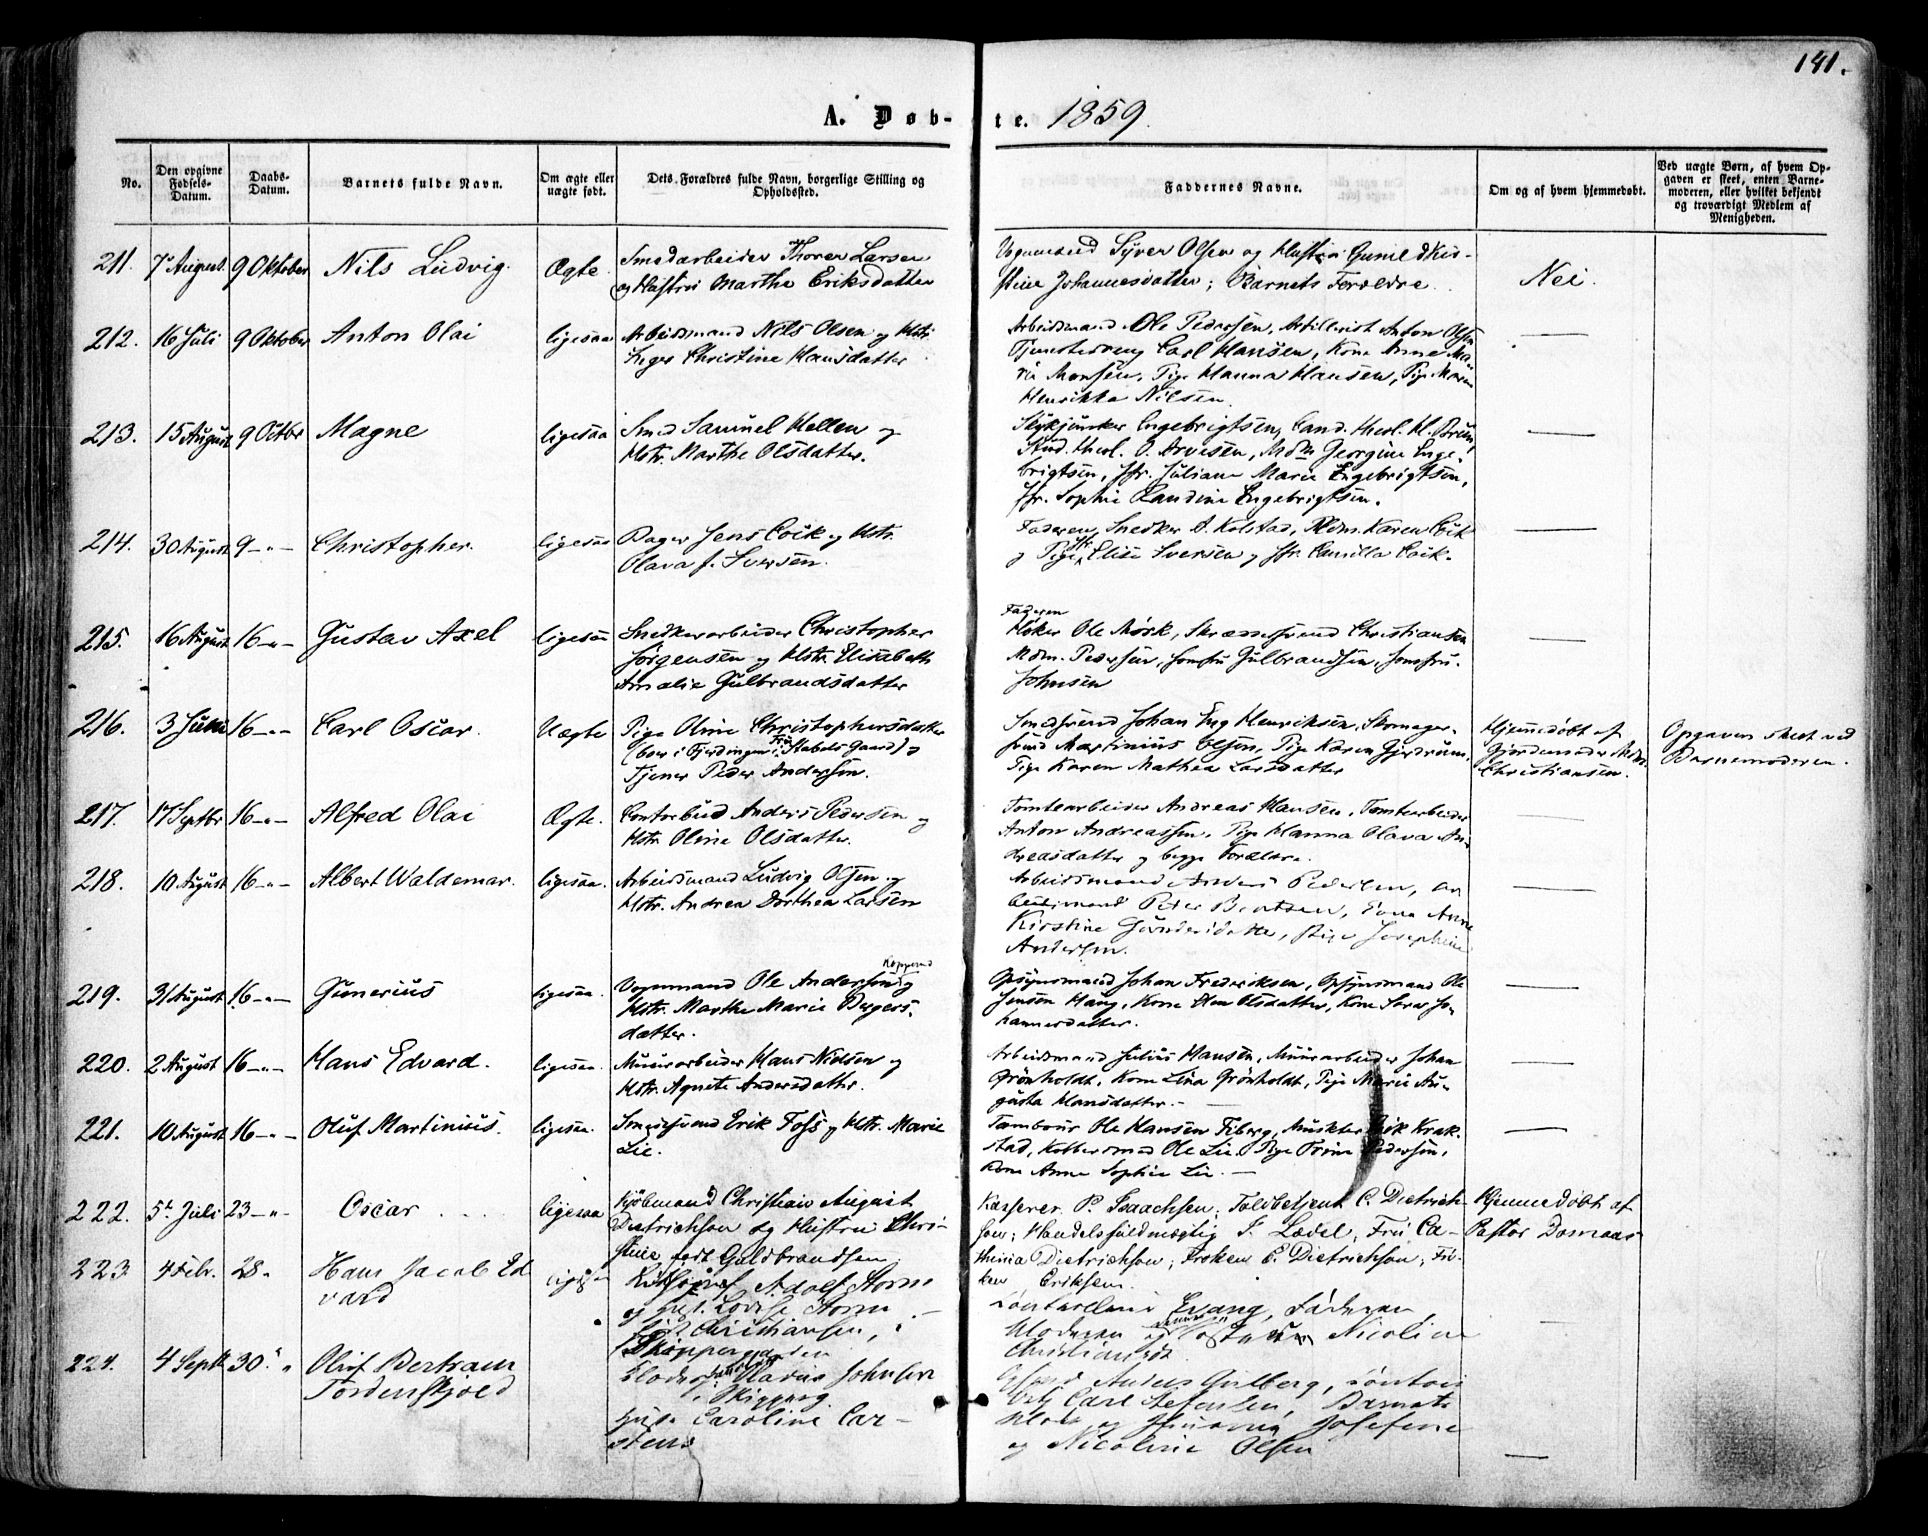 141.
A. Døb- te. 1859.
No.
Den opgivne Fødsels-Datum.
Daabs-Datum.
Barnets fulde Navn.
Om ægte eller uægte født.
Dets Forældres fulde Navn, borgerlige Stilling og Opholdssted.
Faddernes Navne.
Om og af hvem hjemmedøbt.
Ved uægte Børn, af hvem Opgaven er skeet, enten Barnemoderen, eller hvilket bekjendt og troværdigt Medlem af Menigheden.
211. 7 August. 9 Oktober Nils Ludvig. Ægte.
Smedarbeider Thorer Larsen
og Hustru Marthe Eriksdatter
Vognmand Syver Olsen og Hustru Gunild Kir-
stine Johannesdatter; Barnets Forældre.
Nei.
212. 16 Juli 9 Oktober Anton Olai ligesaa
Arbeidsmand Nils Olsen og Hstr.
Inger Christine Hansdatter
Arbeidsmand Ole Pedersen, Artillerist Anton Olsen
Tjenestedreng Carl Hansen, Kone Anne Ma-
rie Monsen, Pige Hanna Hansen, Pige Maren
Henrikka Nilsen.
213. 15 August 9 Octbr Magne ligesaa
Smed Samuel Hellen og
Hstr. Marthe Olsdatter.
Engebrigtsen, Cand. theol. H. Bruun,
Stud. theol. O. Arvesen, Mdm Georgine Enge-
brigtsen, Jfr. Juliane Marie Engebrigtsen,
Jfr. Sophie Randine Engebrigtsen.
214. 30 August 9 -"- Christopher. ligesaa
Bager Jens Coik og Hstr.
Olava f. Iversen.
Faderen, Snedker A. Kolstad, Mdm. Karen Coik
og Pige Elise Iversen og Jfr. Camilla Coik.
215. 16 August 16 -"- Gustav Axel ligesaa
Snedkerarbeider Christopher
Jørgensen og Hstr. Elisabeth
Amalie Gulbrandsdatter
Faderen
Høker Ole Mørk, Skræddersvend Christiansen
Mdm. Pedersen, Jomfru Gulbrandsen, Jomfru
Johnsen
216. 3 Juni 16 -"- Carl Oscar. Uægte
Pige Oline Christophersdatter
(boer i Fjerdingen i Stabels Gaard) og
Tjener Peder Andersen.
Smedsvend Johan Eng Henriksen, Skomager-
svend Martinius Olsen, Pige Karen Gjerdrum,
Pige Karen Mathea Larsdatter
Hjemmedøbt af
Gjordemoder Mdm.
Christiansen.
Opgaven skeet ved
Barnemoderen.
217. 17 Septbr 16 -"- Alfred Olai Ægte.
Contorbud Anders Pedersen og
Hstr. Oline Olsdatter.
Tomtearbeider Andreas Hansen, Tomtearbeider
Anton Andreassen, Pige Hanna Olava An-
dreasdatter og begge Forældre.
218. 10 August 16 -"- Albert Waldemar. ligesaa.
Arbeidsmand Ludvig Olsen og
Hstr. Andrea Dorthea Larsen
Arbeidsmand Anders Pedersen, Ar-
beidsmand Peder Berntsen, Kone Anne
Kirstine Gundersdatter, Pige Josephine
Andersen.
219. 31 August 16 -"- Gunerius ligesaa.
Vognmand Ole Andersen og
Hstr. Marthe Marie Bergers-
datter.
Opsynsmand Johan Frederiksen, Opsynsmand Ole
Jensen Haug, Kone Elen Olsdatter, Kone Sara Jo-
hannesdatter.
220. 2 August 16 -"- Hans Edvard. ligesaa.
Murerarbeider Hans Nielsen og
Hstr. Agnete Andersdatter.
Arbeidsmand Julius Hansen, Murarbeider Johan
Grönholdt, Kone Lina Grönholdt, Pige Marie Au-
gusta Hansdatter.
221. 10 August 16 -"- Oluf Martinius. ligesaa.
Smedesvend Erik Foss og Hstr. Marie
Lie.
Tambour Ole Hansen Fiberg, Erik Krak-
stad, Kobbersmed Ole Lie, Pige Trine Pedersen,
Kone Anne Sophie Lie.
222. 5te Juli 23 -"- Oscar ligesaa
Kjøbmand Christian August
Dietrichson og Hustru Chri-
stine født Guldbrandsen.
Kasserer P. Isaachsen; Toldbetjent C. Dietrich-
son; Handelsfuldmægtig J. Lædel; Frü Ca-
thinia Dietrichson; Frøken E. Dietrichson; Frö-
ken Eriksen.
Hjemmedøbt af
Pastor Domaas
223 4 Febr. 28. Hans Jacob Ed
vard ligesaa
Adolf Storm
og Hus. Lovise Storm
født Christiansen, i
Evang, Faderen
Moderen og Nicoline
Christiansen
224. 4 Septb 30. " Oluf Bertram
Tordenskjold
Marius Johnsen
i Skippergd.
Hus. Caroline Car-
stens
Anders Gulberg,
Carl Stefensen, Barnets
Moder og Josefine
og Nicoline Olsen